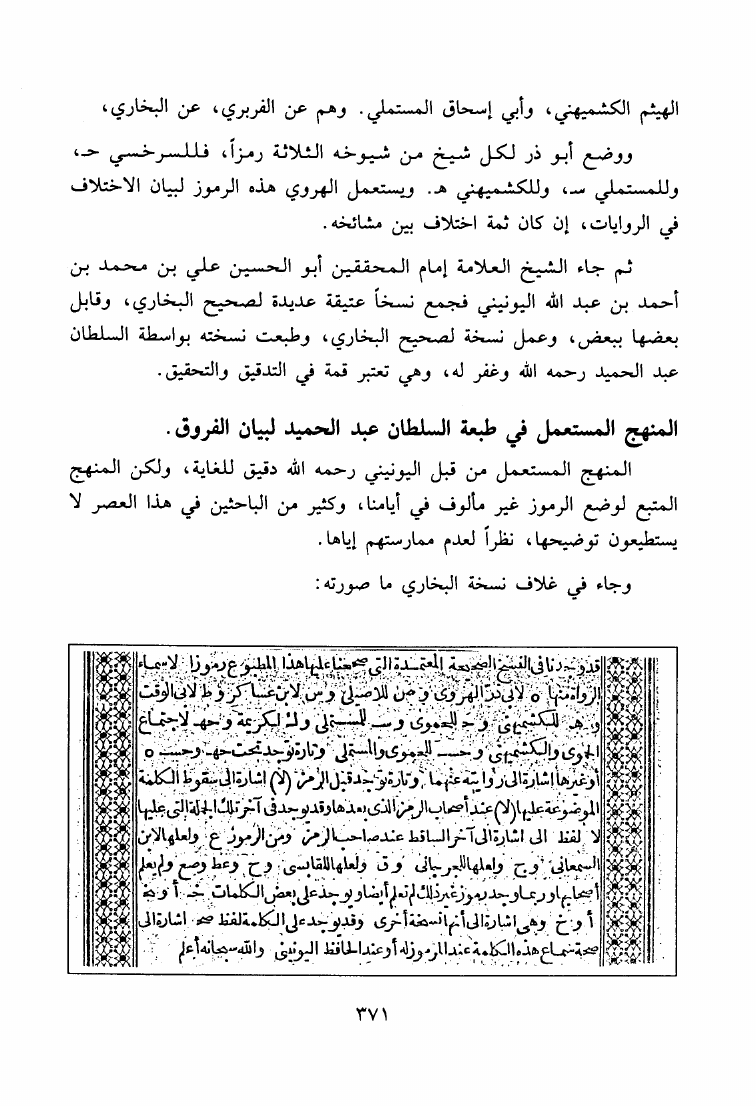 الهيثم الكشميهني، وأبي إسحاق المستملي. وهم عن الفربري، عن البخاري،
ووضع أبو ذر لكل شيخ من شيوخه الثلاثة رمزاً، فللسرخسي حـ،
وللمستملي سـ، وللكشميهني هـ. ويستعمل الهروي هذه الرموز لبيان الاختلاف
في الروايات، إن كان ثمة اختلاف بين مشائخه.
ثم جاء الشيخ العلامة إمام المحققين أبو الحسين علي بن محمد بن
أحمد بن عبد الله اليونيني فجمع نسخاً عتيقة عديدة لصحيح البخاري، وقابل
بعضها ببعض، وعمل نسخة لصحيح البخاري، وطبعت نسخته بواسطة السلطان
عبد الحميد رحمه الله وغفر له، وهي تعتبر قمة في التدقيق والتحقيق.
المنهج المستعمل في طبعة السلطان عبد الحميد لبيان الفروق.
المنهج المستعمل من قبل اليونيني رحمه الله دقيق للغاية، ولكن المنهج
المتبع لوضع الرموز غير مألوف في أيامنا، وكثير من الباحثين في هذا العصر لا
يستطيعون توضيحها، نظراً لعدم ممارستهم إياها.
وجاء في غلاف نسخة البخاري ما صورته:
قد وجدنا في النسخ الصحيحة المعتمدة التي صححنا عليها هذا المطبوع رموزا لاسماء
الرواة منها ه لابى ذر الهروى و ص للاصيلي و س لابن عساكر و ط لابى الوقت
و هـ للكشميهنى و حـ للحموى و سـ للمستملى و ك لكريمة و حهـ لاجتماع
الحموى والكشميهنى و حسـ للحموى والمستملى وتارة توجد تحت حهـ وحسـ ه
أو غيرها اشارة الى روايته عنهما وتارة توجد قبل الرمز (لا) اشارة الى سقوط الكلمة
الموضوعة عليها (لا) عند أصحاب الرمز الذى بعدها وقد يوجد فى آخر تلك الجملة التى عليها
لا لفظ الى اشارة الى آخر الساقط عند صاحب الرمز ومن الرموز ع ولعلها لابن
السمعانى و ج ولعلها للجرجانى و ق ولعلها للقابسى و ح وعط وصع ولم يعلم
أصحابها وربما وجد رموز غير ذلك لم تعلم أيضا ويوجد على بعض الكلمات خـ أو
أو خ وهى اشارة الى أنها نسخة أخرى وقد يوجد على الكلمة لفظ صح اشارة الى
صحة سماع هذه الكلمة عند المرموز له أو عند الحافظ اليونينى والله سبحانه أعلم
٣٧١